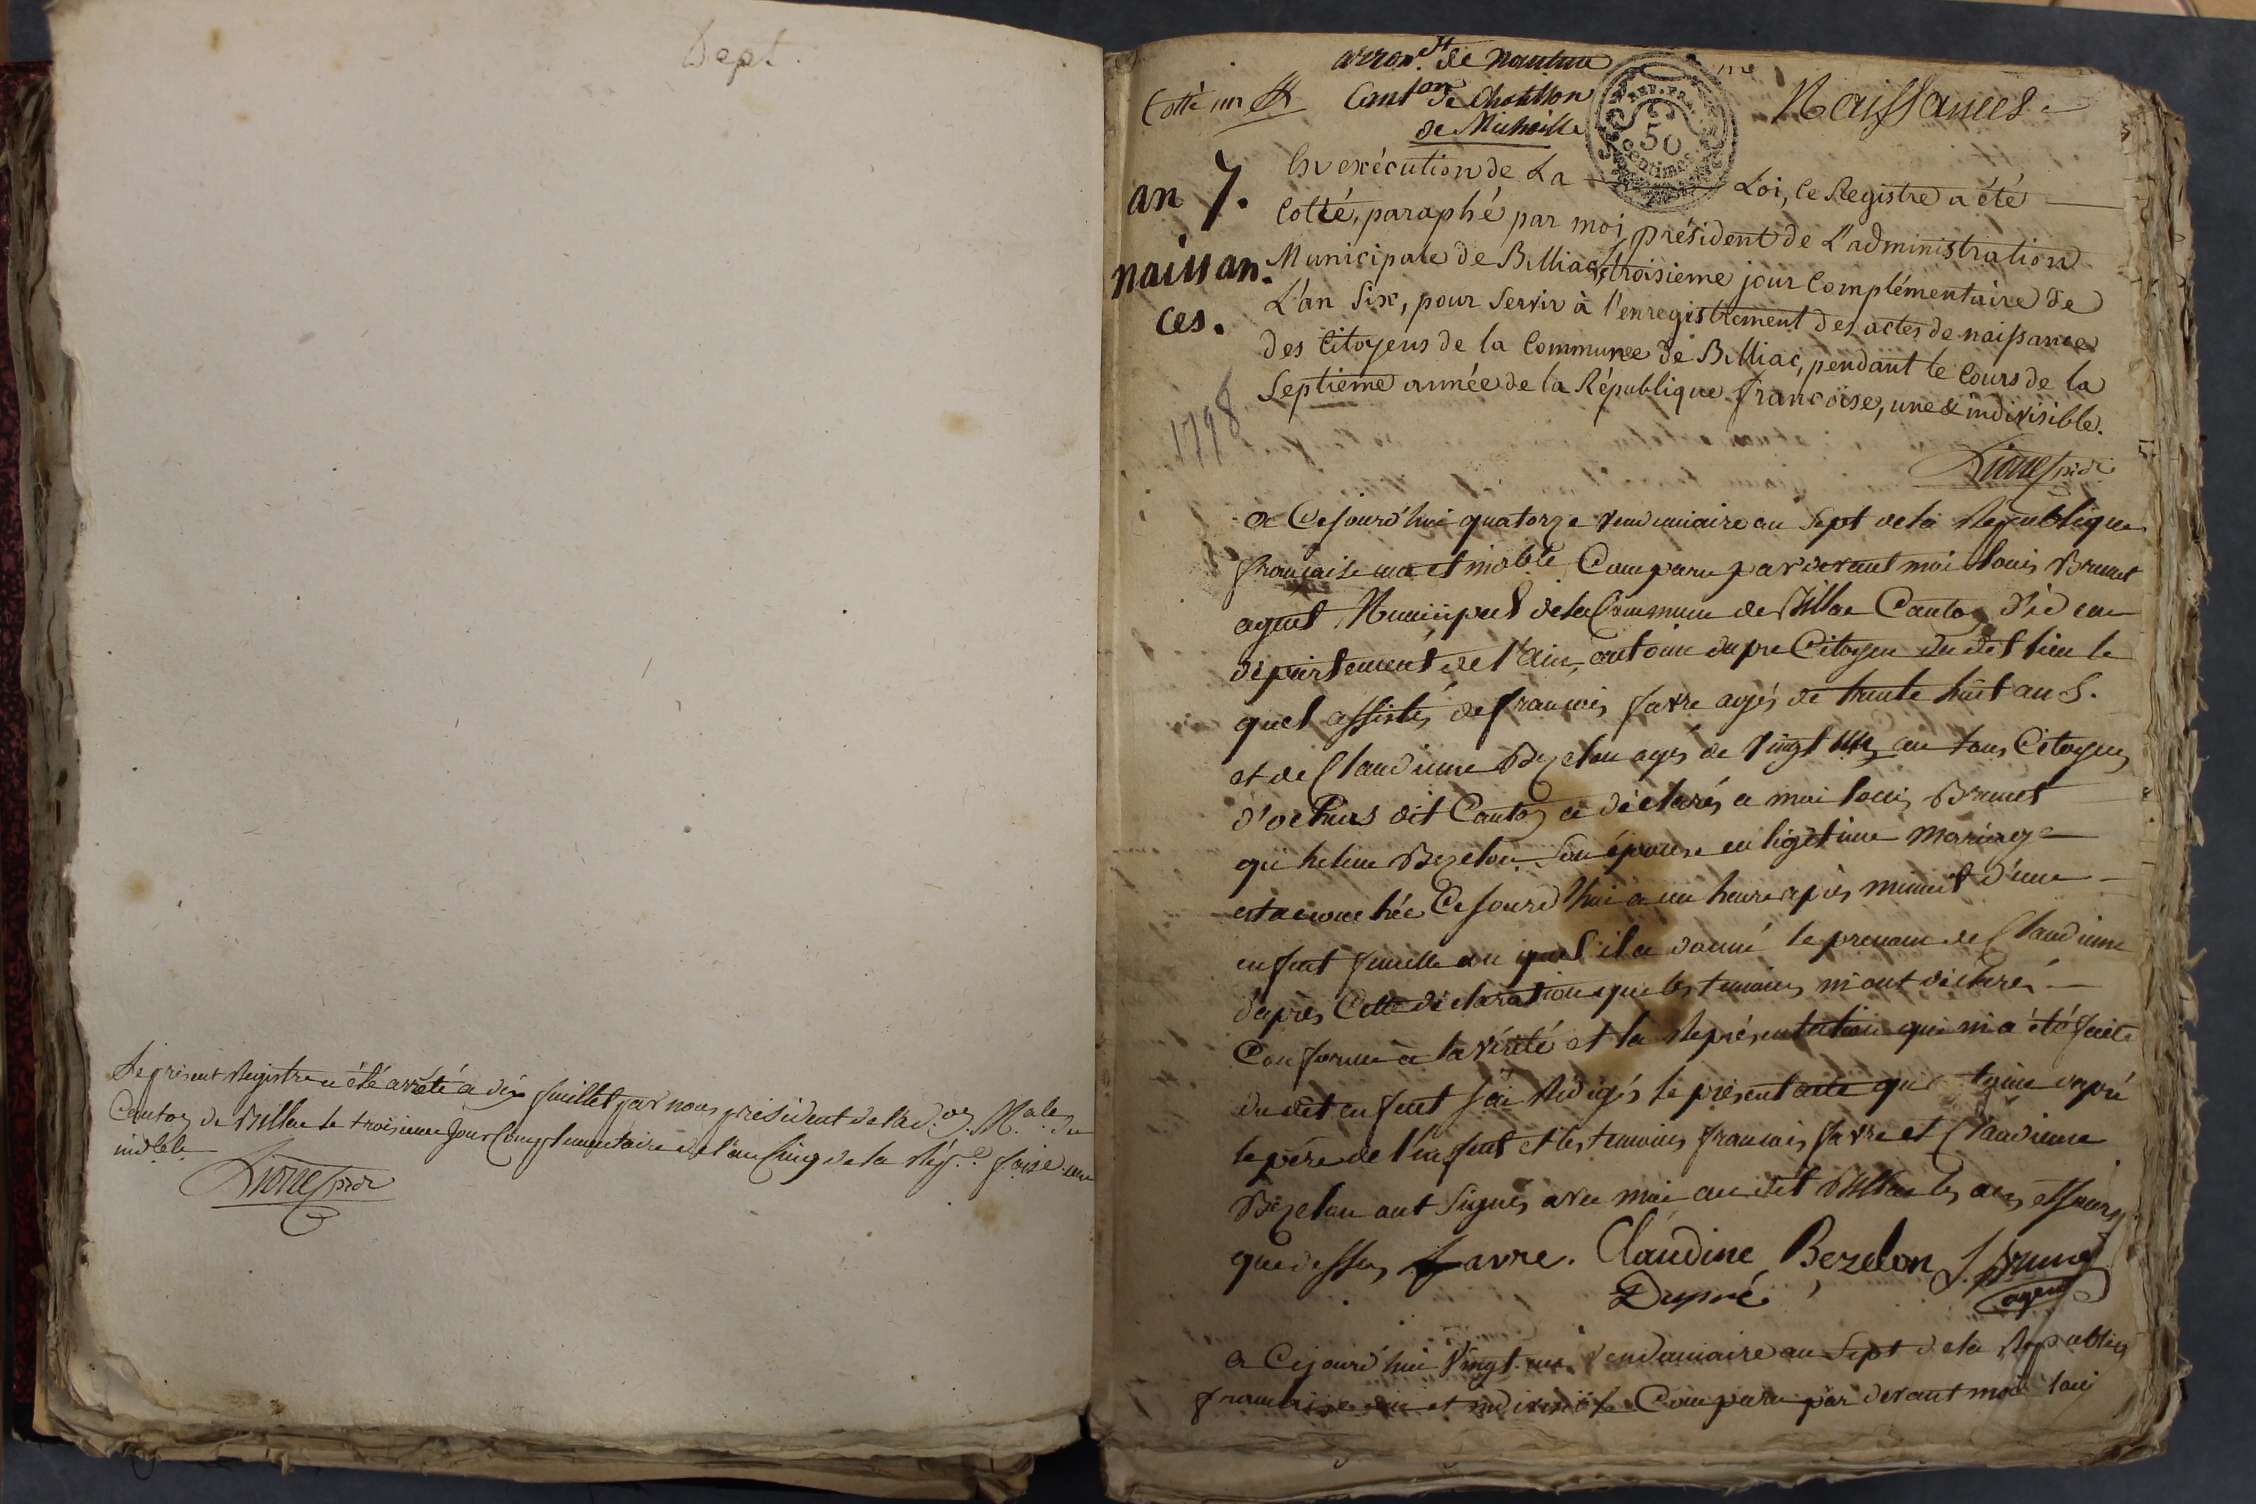 Dept.
Le present Registre a été arreté a dix feuillet par nous president de l'ad.on M.ale du
Canton de Billiac le troisieme jour Complementaire de l'an Cinq de la Rép.e fse une
indble
pdt
arron.t de nantua
Cotté un
Canton de Chatillon
de Michaille
REP. FRA.
50
centimes
Naissances
an 7.
naissan-
ces.
1798
En exécution de La Loi, le Registre a été
Cotté, paraphé par moi, président de L'administration
Municipale de Billiac, le troisieme jour Complémentaire de
L'an Six, pour Servir à l'enregistrement des actes de naissance
des Citoyens de la Commune de Billiac, pendant le Cours de la
Septieme année de la République françoise, une & indivisible.
pdt
Cejourd'hui quatorze Vendemiaire an Sept de la Republique
française une et indble Comparu par devant moi Louis Brunet
agent Municipal de la Commune de Billiac Canton d'idem
departement de l'Ain, antoine dupre Citoyen du dit lieu le
quel assistés de francois favre agés de trente huit ans.
et de Claudinne Bezelon agés de Vingt un an tous Citoyens
d'ochias dit Canton a déclarés a moi Louis Brunet
que heline Bezelon Son épouse en ligetime mariage
est acouchée Cejourd'hui a un heure après minuit d'une
enfent femelle au quel il a donné le prenom de Claudinne
daprès Cette declaration que les temoins m'ont déclarés
Conforme à la vérité et la Représentation qui m'a été faite
du dit enfent j'ai Redigés le présent acte que toine dupré
le père de l'enfent et les temoins francois favre et Claudinne
Bezelon ont Signés avec moi au dit Billiac les an et jours
que dessus favre. Claudine Bezelon L. brunet
Dupré agent
Cejourd'hui Vingt un Vendemiaire an Sept de la Republique
francaise une et indivisible Comparu par devant moi Loui